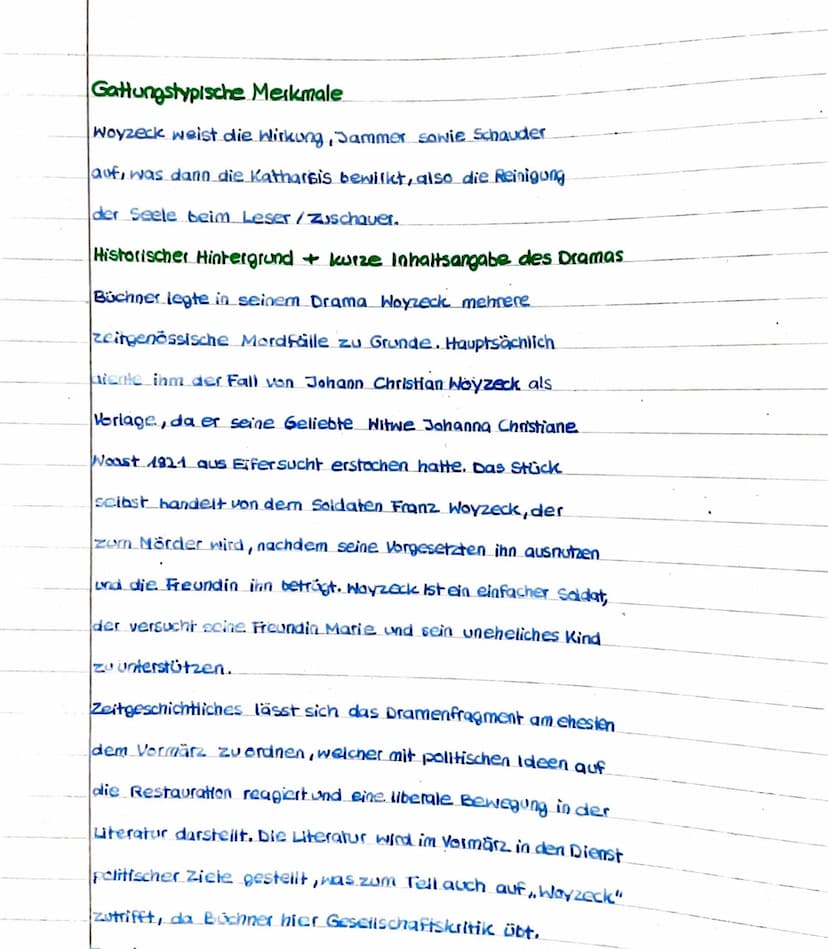 Gattungstypische Merkmale
Woyzeck weist die Wirkung, Jammer sowie Schauder
auf, was dann die Katharsis bewirkt, also die Reinigung
der Seele beim Leser / Zuschauer.
Historischer Hintergrund + kurze Inhaltsangabe des Dramas
Büchner legte in seinem Drama Woyzeck mehrere
zeitgenössische Mordfälle zu Grunde. Hauptsächlich
diente ihm der Fall von Johann Christian Woyzeck als
Vorlage, da er seine Geliebte Witwe Johanna Christiane
Woost 1821 aus Eifersucht erstochen hatte. Das Stück
selbst handelt von dem Soldaten Franz Woyzeck, der
zum Mörder wird, nachdem seine Vorgesetzten ihn ausnutzen
und die Freundin ihn betrügt. Woyzeck ist ein einfacher Soldat,
der versucht seine Freundin Marie und sein uneheliches Kind
zu unterstützen.
Zeitgeschichtliches lässt sich das Dramenfragment am ehesten
dem Vormärz zu ordnen, welcher mit politischen Ideen auf
die Restauration reagiert und eine liberale Bewegung in der
Literatur darstellt. Die Literatur wird im Vormärz in den Dienst
politischer Ziele gestellt, was zum Teil auch auf „Woyzeck"
zutrifft, da Büchner hier Gesellschaftskritik übt.